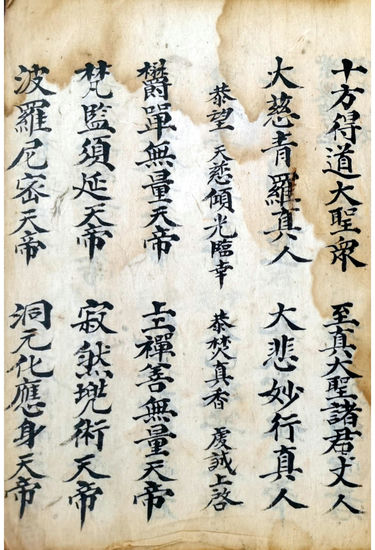 十方得道大聖衆 至真大聖諸君丈人
大慈青羅真人 大悲妙行真人
恭望 天慈傾光臨幸 恭焚真香 虔誠上啓
欝單無量天帝 上上禪善無量天帝
梵監須延天帝 寂然兠術天帝
波羅尼密天帝 洞元化應身天帝